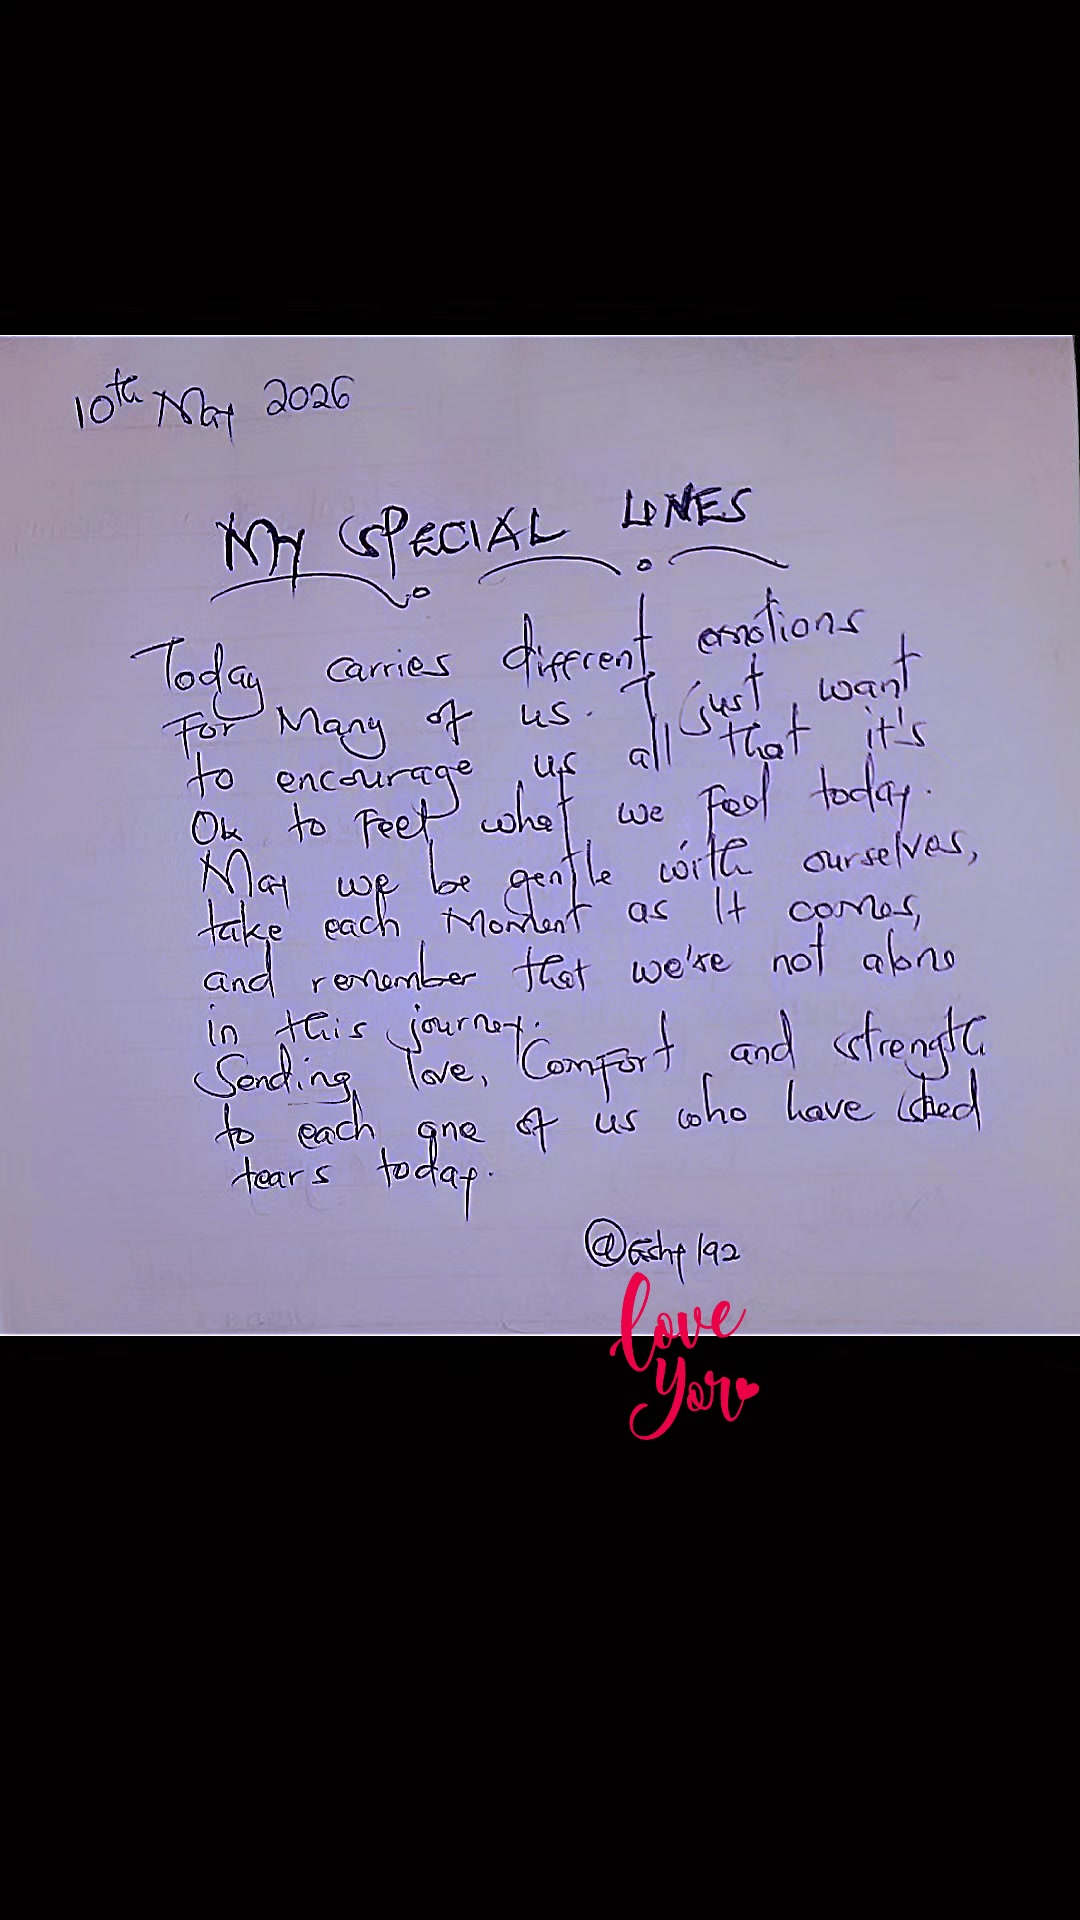 10th May 2026
MY SPECIAL LINES
Today carries different emotions
For Many of us. I just want
to encourage us all that it's
Ok to Feel what we Feel today.
May we be gentle with ourselves,
take each Moment as It comes,
and remember that we're not alone
in this journey.
Sending love, Comfort and strength
to each one of us who have shed
tears today.
love
You